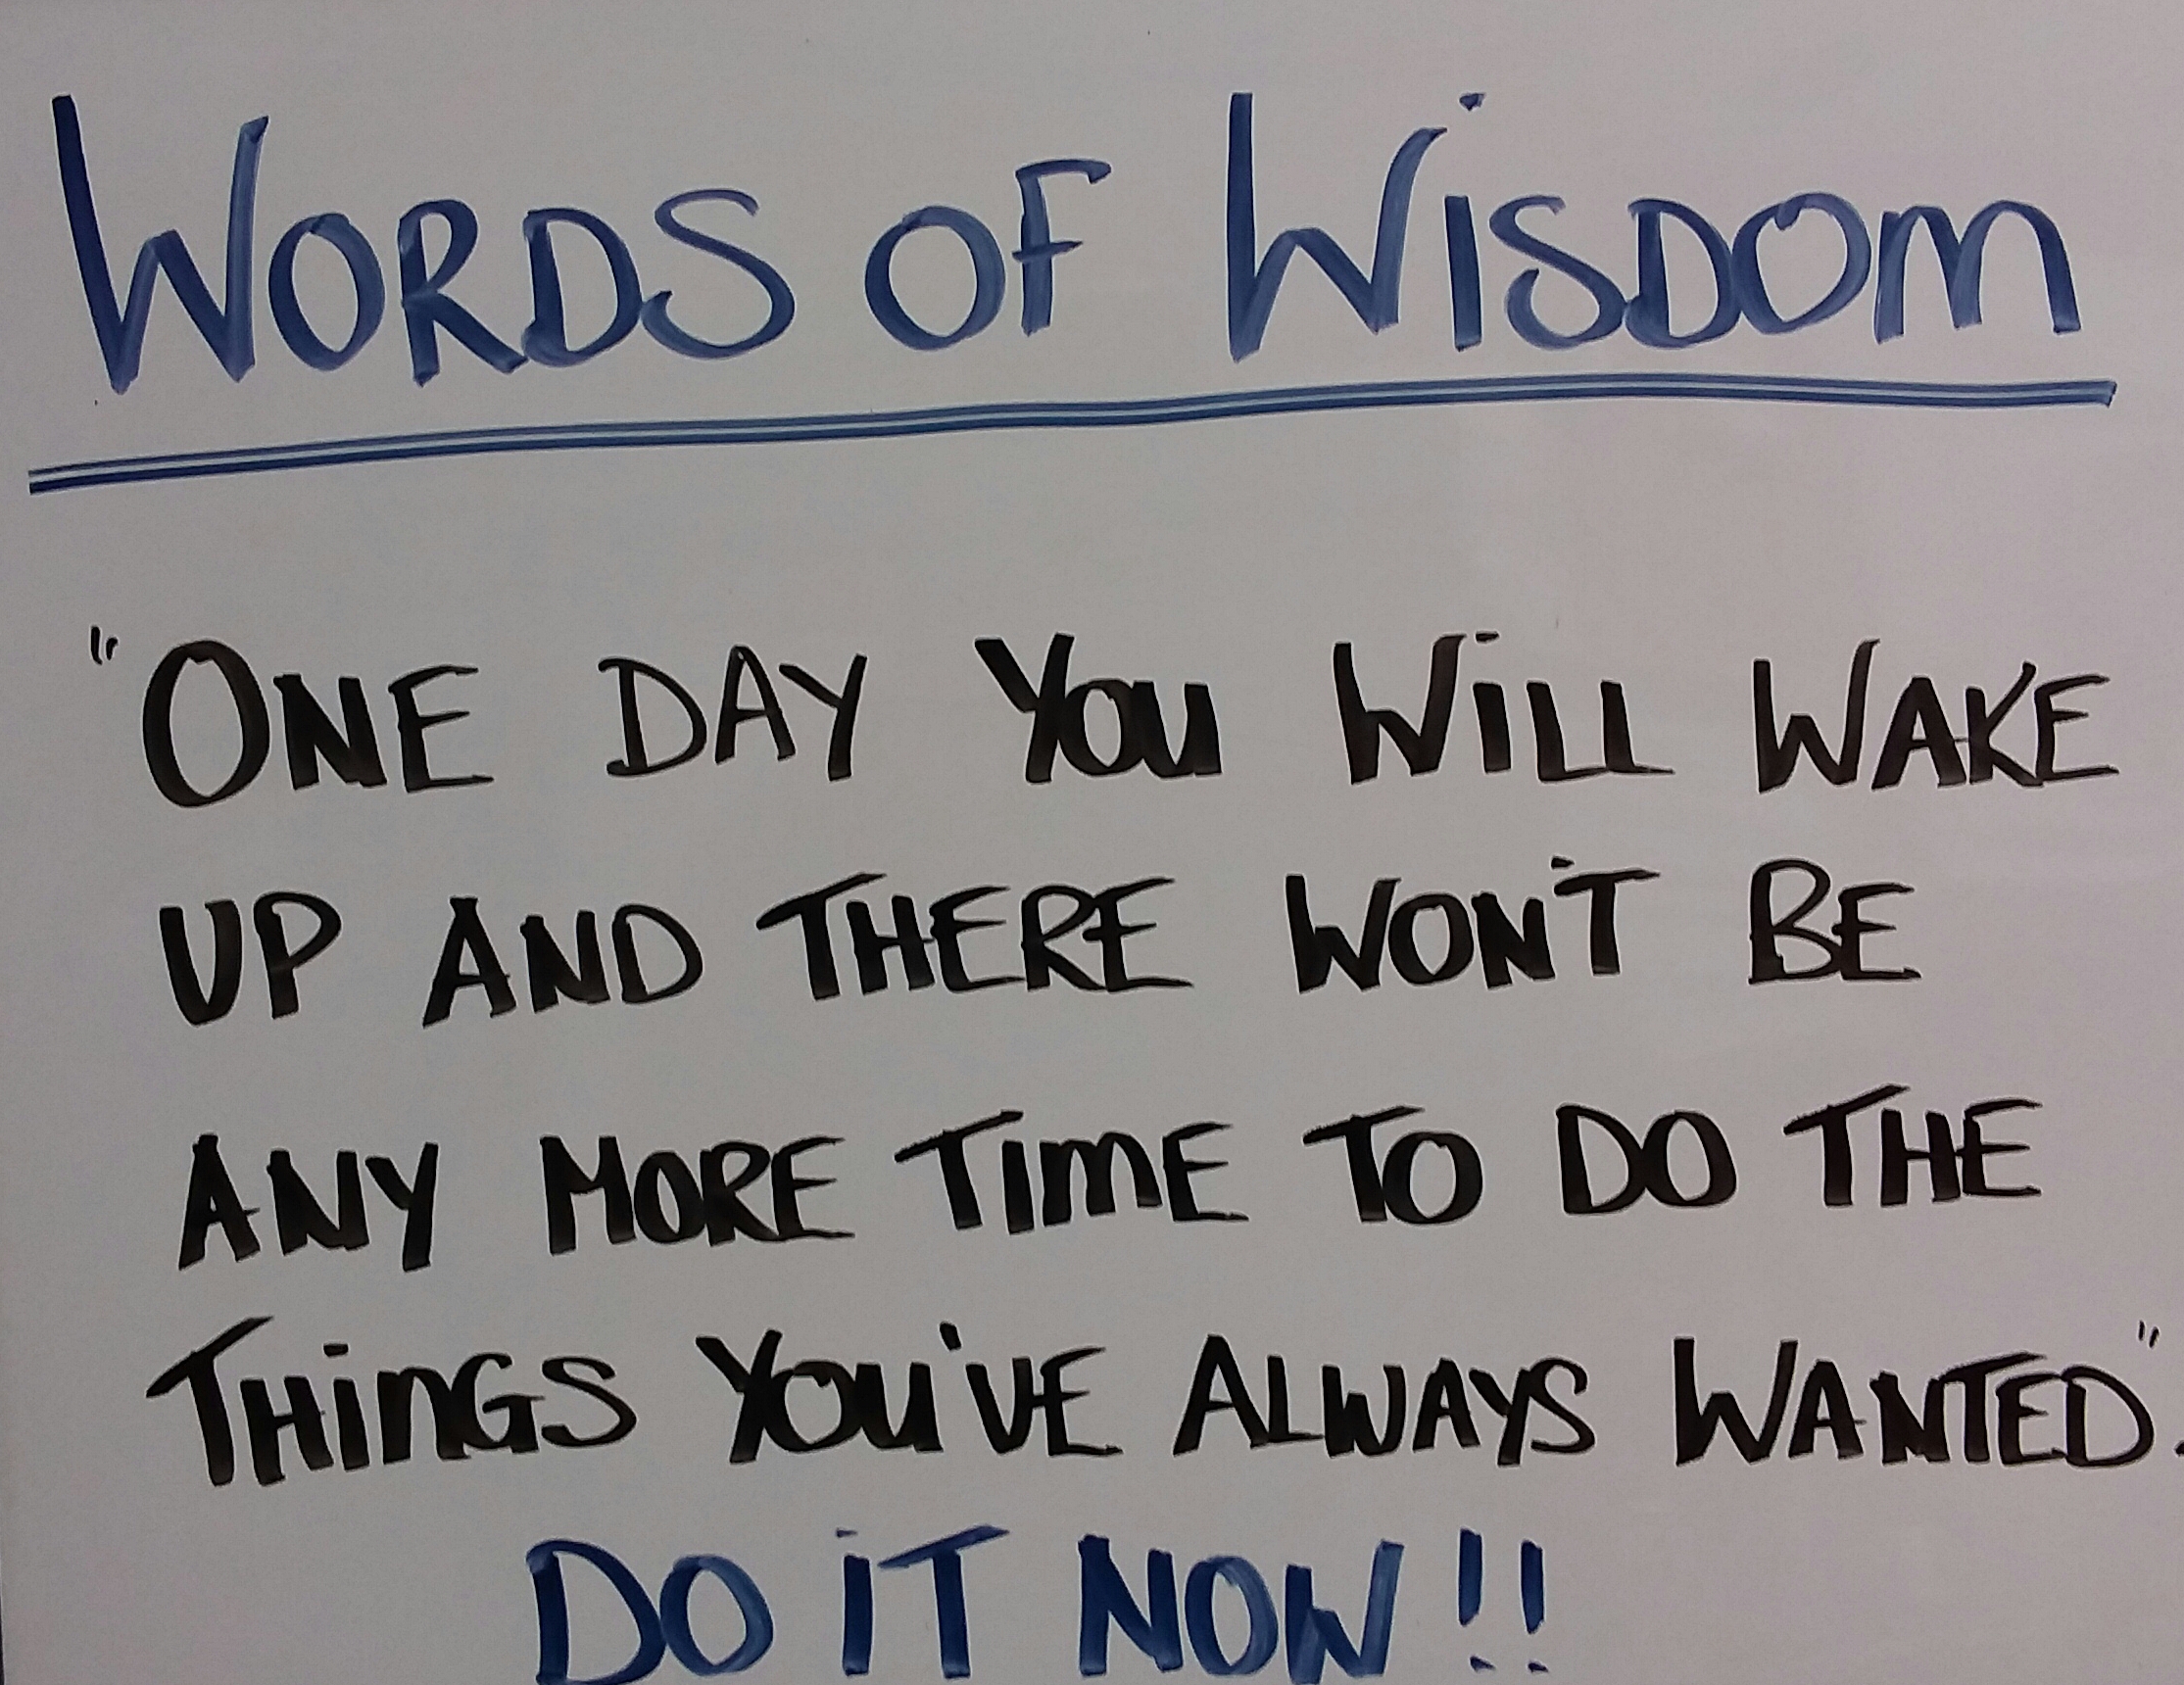 WORDS OF WISDOM
"ONE DAY YOU WILL WAKE
UP AND THERE WON'T BE
ANY MORE TIME TO DO THE
THINGS YOU'VE ALWAYS WANTED".
DO IT NOW!!